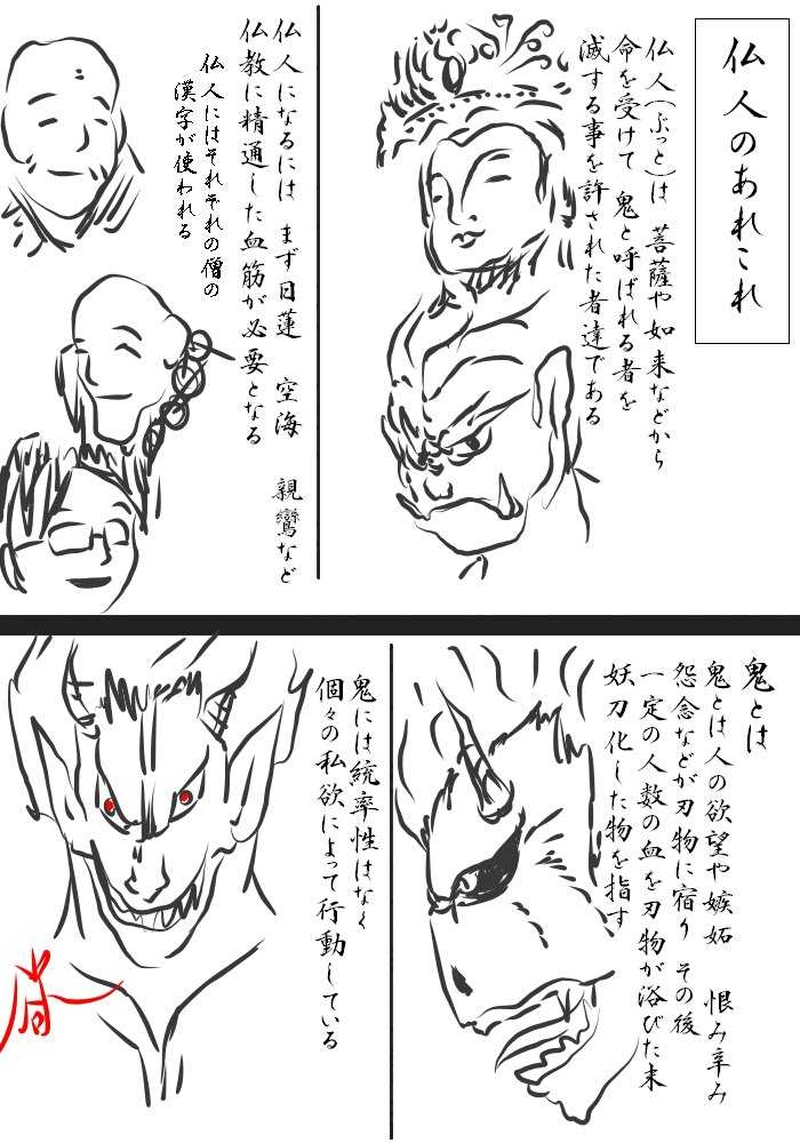 仏人のあれこれ
仏人(ぶっと)は 菩薩や如来などから
命を受けて 鬼と呼ばれる者を
滅する事を許された者達である
仏人になるには まず日蓮 空海 親鸞など
仏教に精通した血筋が必要となる
仏人にはそれぞれの僧の
漢字が使われる
鬼とは
鬼とは人の欲望や嫉妬 恨み辛み
怨念などが刃物に宿り その後
一定の人数の血を刃物が浴びた末
妖刀化した物を指す
鬼には統率性はなく
個々の私欲によって行動している